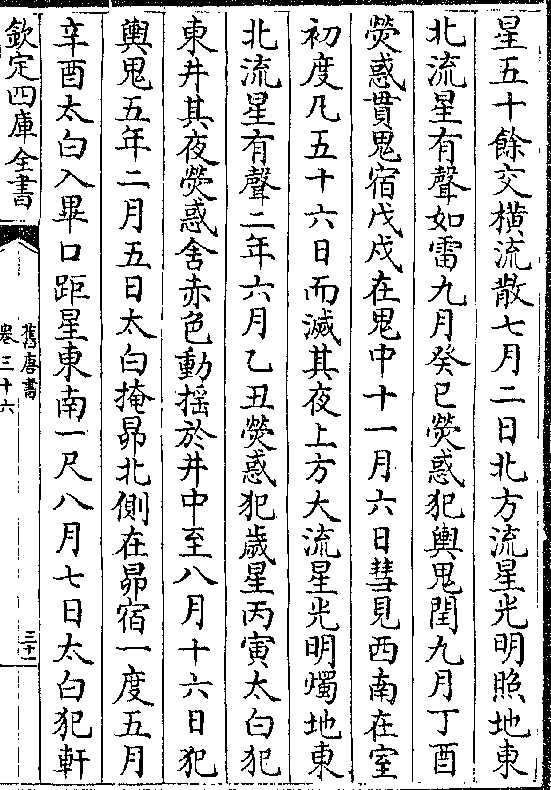 星五十餘交橫流散七月二日北方流星光明照地東
北流星有聲如雷九月癸巳熒惑犯輿鬼閏九月丁酉
熒惑貫鬼宿戊戌在鬼中十一月六日彗見西南在室
初度凡五十六日而滅其夜上方大流星光明燭地東
北流星有聲二年六月乙丑熒惑犯歲星丙寅太白犯
東井其夜熒惑舍赤色動搖於井中至八月十六日犯
輿鬼五年二月五日太白掩昴北側在昴宿一度五月
辛酉太白入畢口距星東南一尺八月七日太白犯軒
欽定四庫全書
舊唐書
卷三十六
三十一